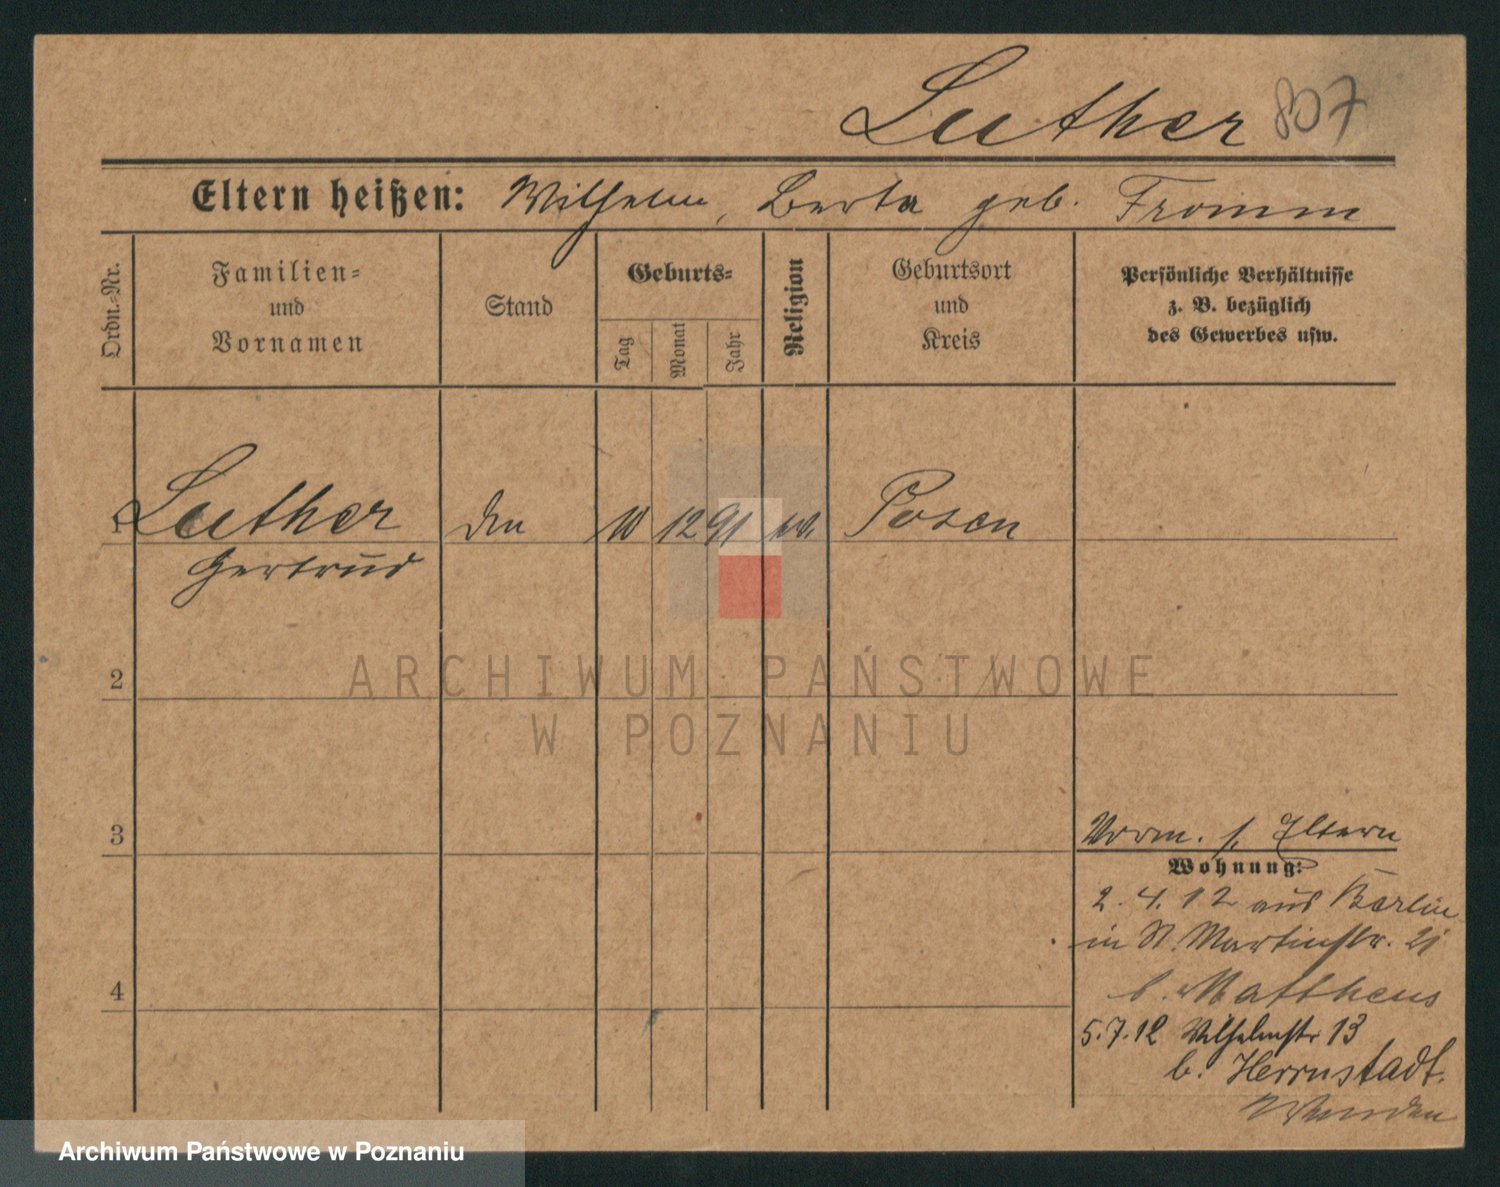 Luther 807
Eltern heißen: Wilhelm, Berta geb. Fromm
Ordn.-Nr.
Familien-
und
Vornamen
Stand
Geburts-
Tag
Monat
Jahr
Religion
Geburtsort
und
Kreis
Persönliche Verhältnisse
z. B. bezüglich
des Gewerbes usw.
1 Luther 10 12 91 Posen
Gertrud
2
3
4
Vorm. s. Eltern
Wohnung:
2. 4. 12 aus Berlin
in St. Martinstr. 21
b. Mattheus
5. 7. 12 Wilhelmstr 13
b. Herrnstadt.
ARCHIWUM PAŃSTWOWE
W POZNANIU
Archiwum Państwowe w Poznaniu